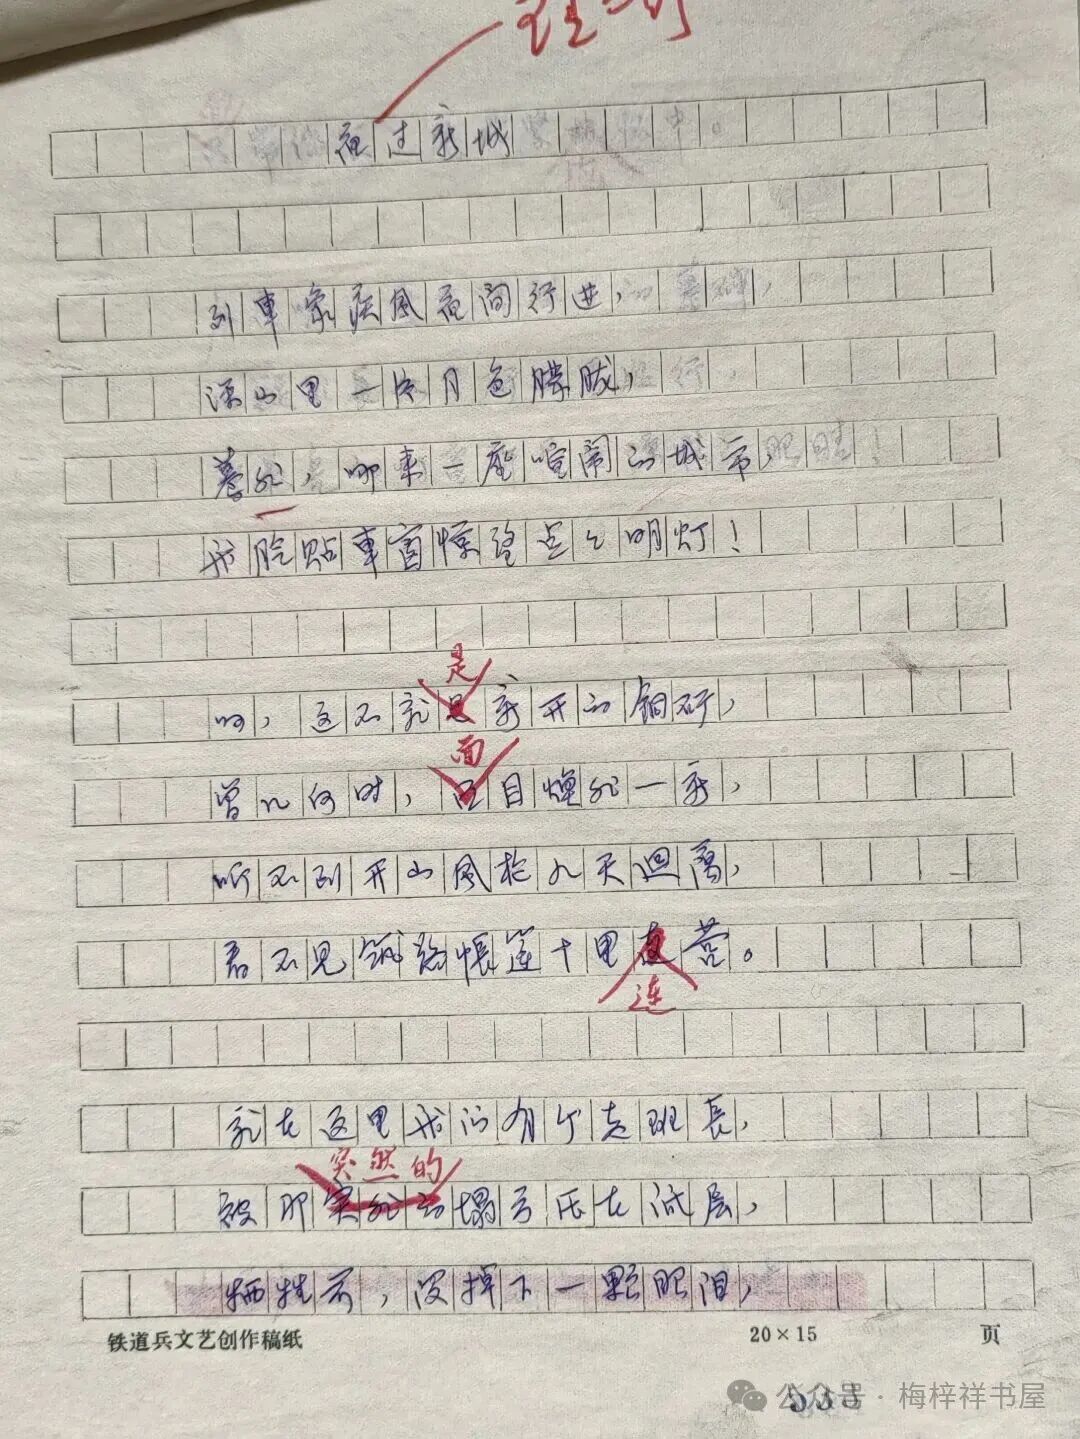 夜过新城
列車象疾风夜间行进，
深山里一片月色朦胧，
蓦然，哪来一座喧闹的城市，
我脸贴車窗惊望点点明灯！
是
啊，这不就是新开的铜矿，
面
曾几何时，面目焕然一新，
听不到开山风枪九天迴离，
君不见筑路帐篷十里连营。
连
就在这里我们有个老班長，
突然的
被那突然的塌方压在底层，
牺牲前，没掉下一颗眼泪，
铁道兵文艺创作稿纸
20×15
页
公众号·梅梓祥书屋